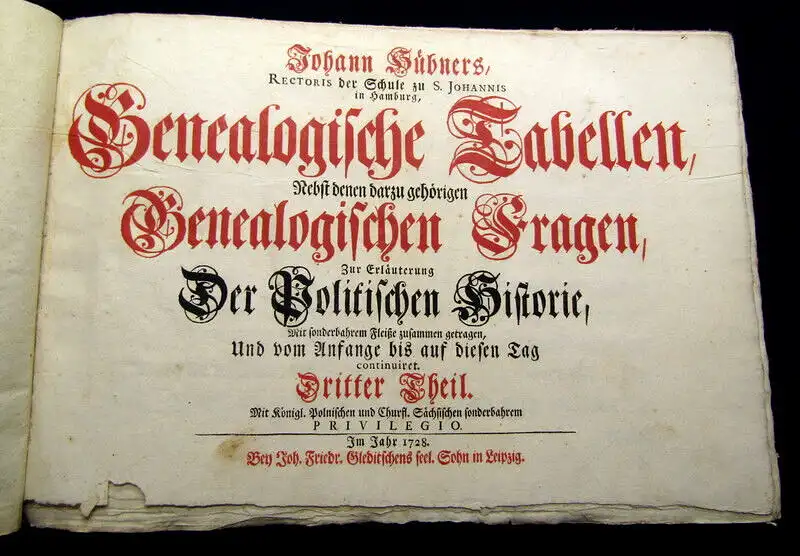 Johann Hübners,
RECTORIS der Schule zu S. JOHANNIS
in Hamburg,
Genealogische Tabellen,
Nebst denen darzu gehörigen
Genealogischen Fragen,
Zur Erläuterung
Der Politischen Historie,
Mit sonderbahrem Fleiße zusammen getragen,
Und vom Anfange bis auf diesen Tag
continuiret.
Dritter Theil.
Mit Königl. Polnischen und Churfl. Sächsischen sonderbahrem
PRIVILEGIO.
Im Jahr 1728.
Bey Joh. Friedr. Gleditschens seel. Sohn in Leipzig.